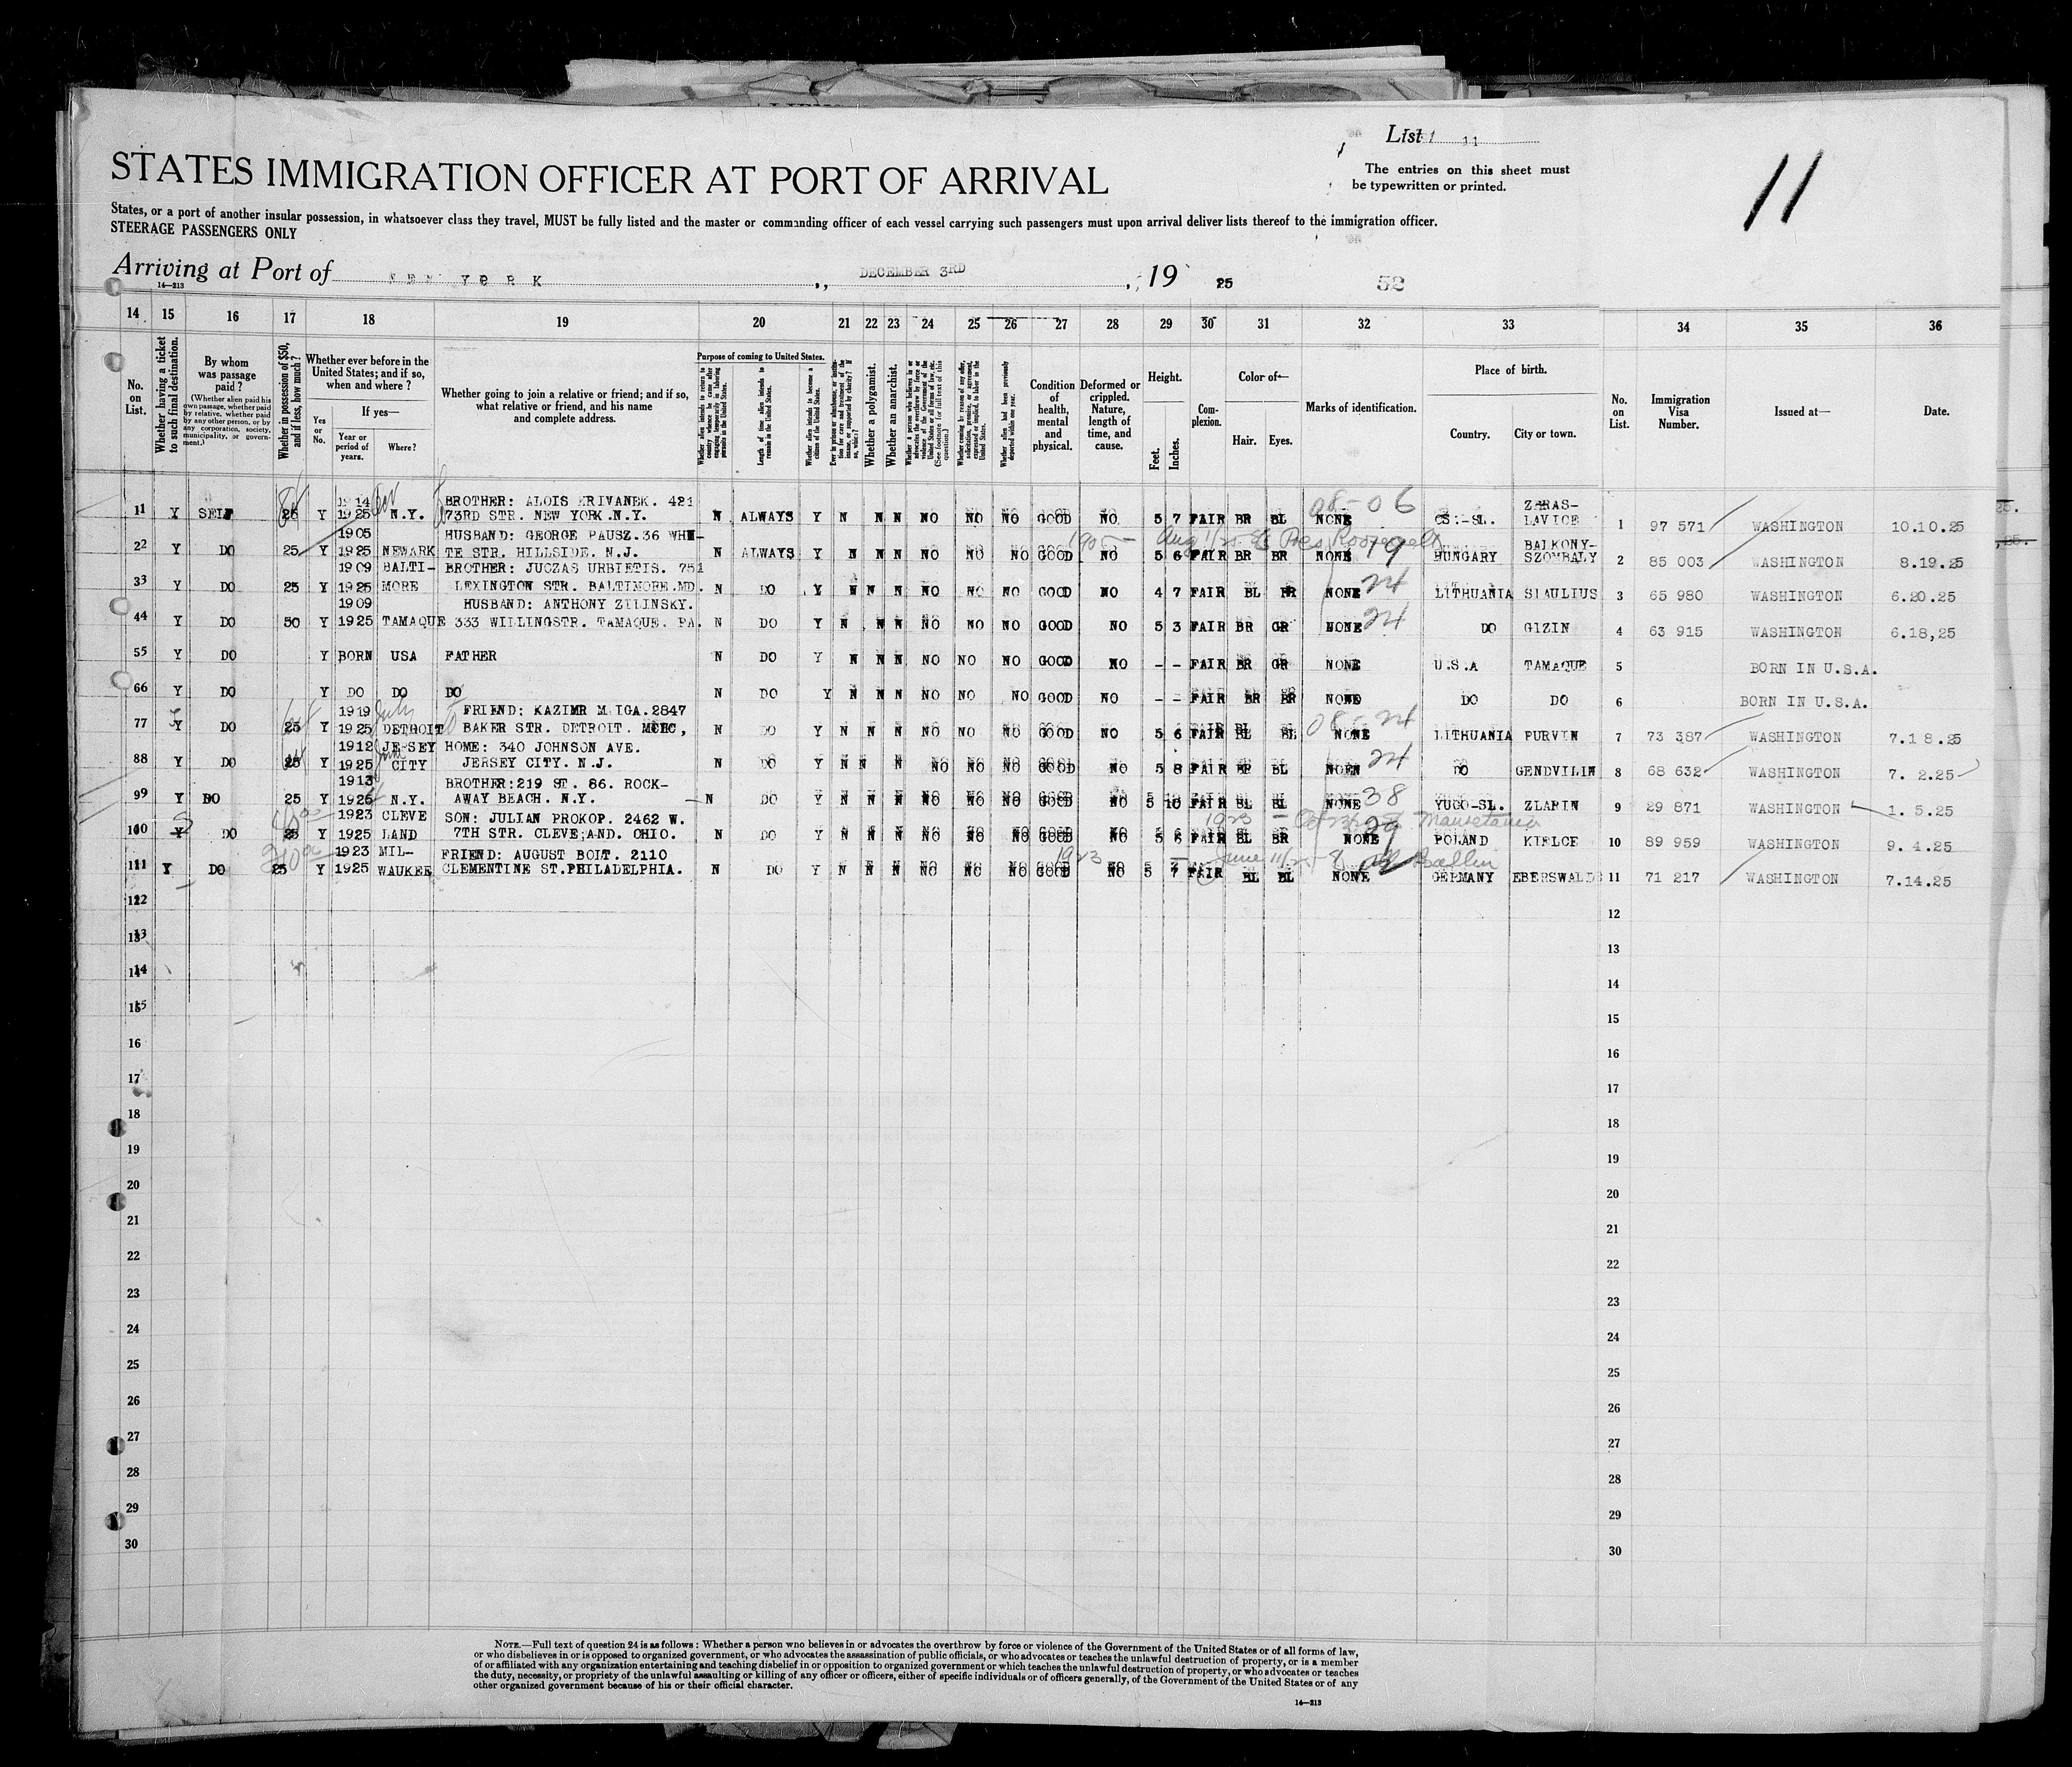 List 11
The entries on this sheet must
be typewritten or printed.
11
STATES IMMIGRATION OFFICER AT PORT OF ARRIVAL
States, or a port of another insular possession, in whatsoever class they travel, MUST be fully listed and the master or commanding officer of each vessel carrying such passengers must upon arrival deliver lists thereof to the immigration officer.
STEERAGE PASSENGERS ONLY
Arriving at Port of NEW YORK, DECEMBER 3RD, 19 25 52
14—213
14 15 16 17 18 19 20 21 22 23 24 25 26 27 28 29 30 31 32 33 34 35 36
No. on List.
Whether having a ticket to such final destination.
By whom was passage paid?
(Whether alien paid his own passage, whether paid by relative, whether paid by any other person, or by any corporation, society, municipality, or government.)
Whether in possession of $50, and if less, how much?
Whether ever before in the United States; and if so, when and where?
Yes or No.
If yes—
Year or period of years.
Where?
Whether going to join a relative or friend; and if so, what relative or friend, and his name and complete address.
Purpose of coming to United States.
Whether alien intends to return to country whence he came after engaging temporarily in laboring pursuits in the United States.
Length of time alien intends to remain in the United States.
Whether alien intends to become a citizen of the United States.
Whether a polygamist.
Whether an anarchist.
Condition of health, mental and physical.
Deformed or crippled. Nature, length of time, and cause.
Height.
Feet. Inches.
Complexion.
Color of—
Hair. Eyes.
Marks of identification.
Place of birth.
Country. City or town.
No. on List.
Immigration Visa Number.
Issued at—
Date.
1914 BROTHER: ALOIS KRIVANEK. 421 08-06 ZARAS-
11 Y SELF 25 Y 1925 N.Y. 73RD STR. NEW YORK.N.Y. N ALWAYS Y N N N NO NO NO GOOD NO 5 7 FAIR BR BL NONE CS.-SL. LAVICE 1 97 571 WASHINGTON 10.10.25
1905 HUSBAND: GEORGE PAUSZ.36 WHI- 1905— Aug 1/25 Pres Roosevelt BALKONY-
22 Y DO 25 Y 1925 NEWARK TE STR. HILLSIDE. N.J. N ALWAYS Y N N N NO NO NO GOOD NO 5 6 FAIR BR BR NONE 19 HUNGARY SZOMBALY 2 85 003 WASHINGTON 8.19.25
1909 BALTI- BROTHER: JUOZAS URBIETIS. 751
33 Y DO 25 Y 1925 MORE LEXINGTON STR. BALTIMORE.MD. N DO Y N N N NO NO NO GOOD NO 4 7 FAIR BL BR NONE 24 LITHUANIA SIAULIUS 3 65 980 WASHINGTON 6.20.25
1909 HUSBAND: ANTHONY ZILINSKY.
44 Y DO 50 Y 1925 TAMAQUE 333 WILLINGSTR. TAMAQUE. PA. N DO Y N N N NO NO NO GOOD NO 5 3 FAIR BR GR NONE 24 DO GIZIN 4 63 915 WASHINGTON 6.18,25
55 Y DO Y BORN USA FATHER N DO Y N N N NO NO NO GOOD NO - - FAIR BR GR NONE U.S.A TAMAQUE 5 BORN IN U.S.A.
66 Y DO Y DO DO DO N DO Y N N N NO NO NO GOOD NO - - FAIR BR BR NONE DO DO 6 BORN IN U.S.A.
1919 July FRIEND: KAZIMR M IGA.2847 08-24
77 Y DO 25 Y 1925 DETROIT BAKER STR. DETROIT. N DO Y N N N NO NO NO GOOD NO 5 6 FAIR BL BL NONE LITHUANIA PURVIN 7 73 387 WASHINGTON 7.18.25
1912 JERSEY HOME: 340 JOHNSON AVE.
88 Y DO 25 Y 1925 CITY JERSEY CITY. N.J. N DO Y N N N NO NO NO GOOD NO 5 8 FAIR BR BL NONE 24 DO GENDVILIN 8 68 632 WASHINGTON 7. 2.25
1913 BROTHER:219 ST. 86. ROCK-
99 Y DO 25 Y 1925 N.Y. AWAY BEACH. N.Y. N DO Y N N N NO NO NO GOOD NO 5 10 FAIR BL BL NONE 38 YUGO-SL. ZLARIN 9 29 871 WASHINGTON 1. 5.25
1923 CLEVE SON: JULIAN PROKOP. 2462 W. 1923 — Mauretania
100 Y DO 25 Y 1925 LAND 7TH STR. CLEVE;AND. OHIO. N DO Y N N N NO NO NO GOOD NO 5 6 FAIR BL BR NONE POLAND KIELCE 10 89 959 WASHINGTON 9. 4.25
1923 MIL- FRIEND: AUGUST BOIT. 2110 1923 — June 11/25 Ballin
111 Y DO 25 Y 1925 WAUKEE CLEMENTINE ST.PHILADELPHIA. N DO Y N N N NO NO NO GOOD NO 5 7 FAIR BL BL NONE GERMANY EBERSWALD 11 71 217 WASHINGTON 7.14.25
12 12
13 13
14 14
15 15
16 16
17 17
18 18
19 19
20 20
21 21
22 22
23 23
24 24
25 25
26 26
27 27
28 28
29 29
30 30
NOTE.—Full text of question 24 is as follows: Whether a person who believes in or advocates the overthrow by force or violence of the Government of the United States or of all forms of law,
or who disbelieves in or is opposed to organized government, or who advocates the assassination of public officials, or who advocates or teaches the unlawful destruction of property, or is a member
of or affiliated with any organization entertaining and teaching disbelief in or opposition to organized government or which teaches the unlawful destruction of property, or who advocates or teaches
the duty, necessity, or propriety of the unlawful assaulting or killing of any officer or officers, either of specific individuals or of officers generally, of the Government of the United States or of any
other organized government because of his or their official character.
14—213